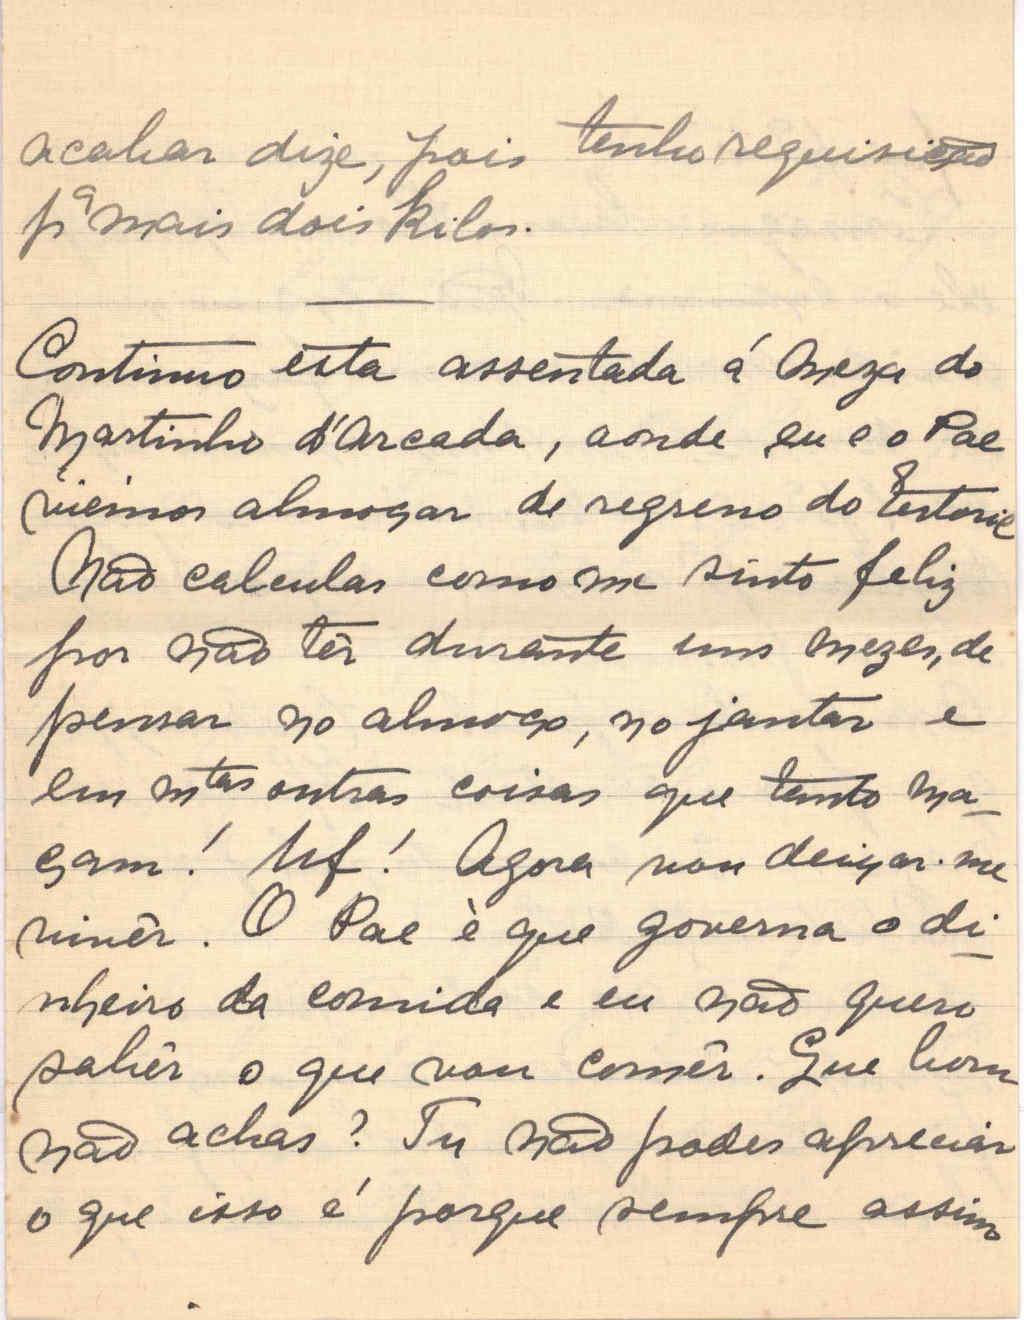 acabar dize, pois tenho requisição
pª mais dois kilos.
Continuo esta assentada á meza do
Martinho d'Arcada, aonde eu e o Pae
viémos almoçar de regresso do Estoril
Não calculas como me sinto feliz
por não têr durante uns mezes, de
pensar no almoço, no jantar e
em mtas outras coisas que tanto ma-
çam! Uf! Agora vou deixar-me
vivêr. O Pae è que governa o di-
nheiro da comida e eu não quero
sabêr o que vou comêr. Que bom
não achas? Tu não podes apreciar
o que isso é porque sempre assim